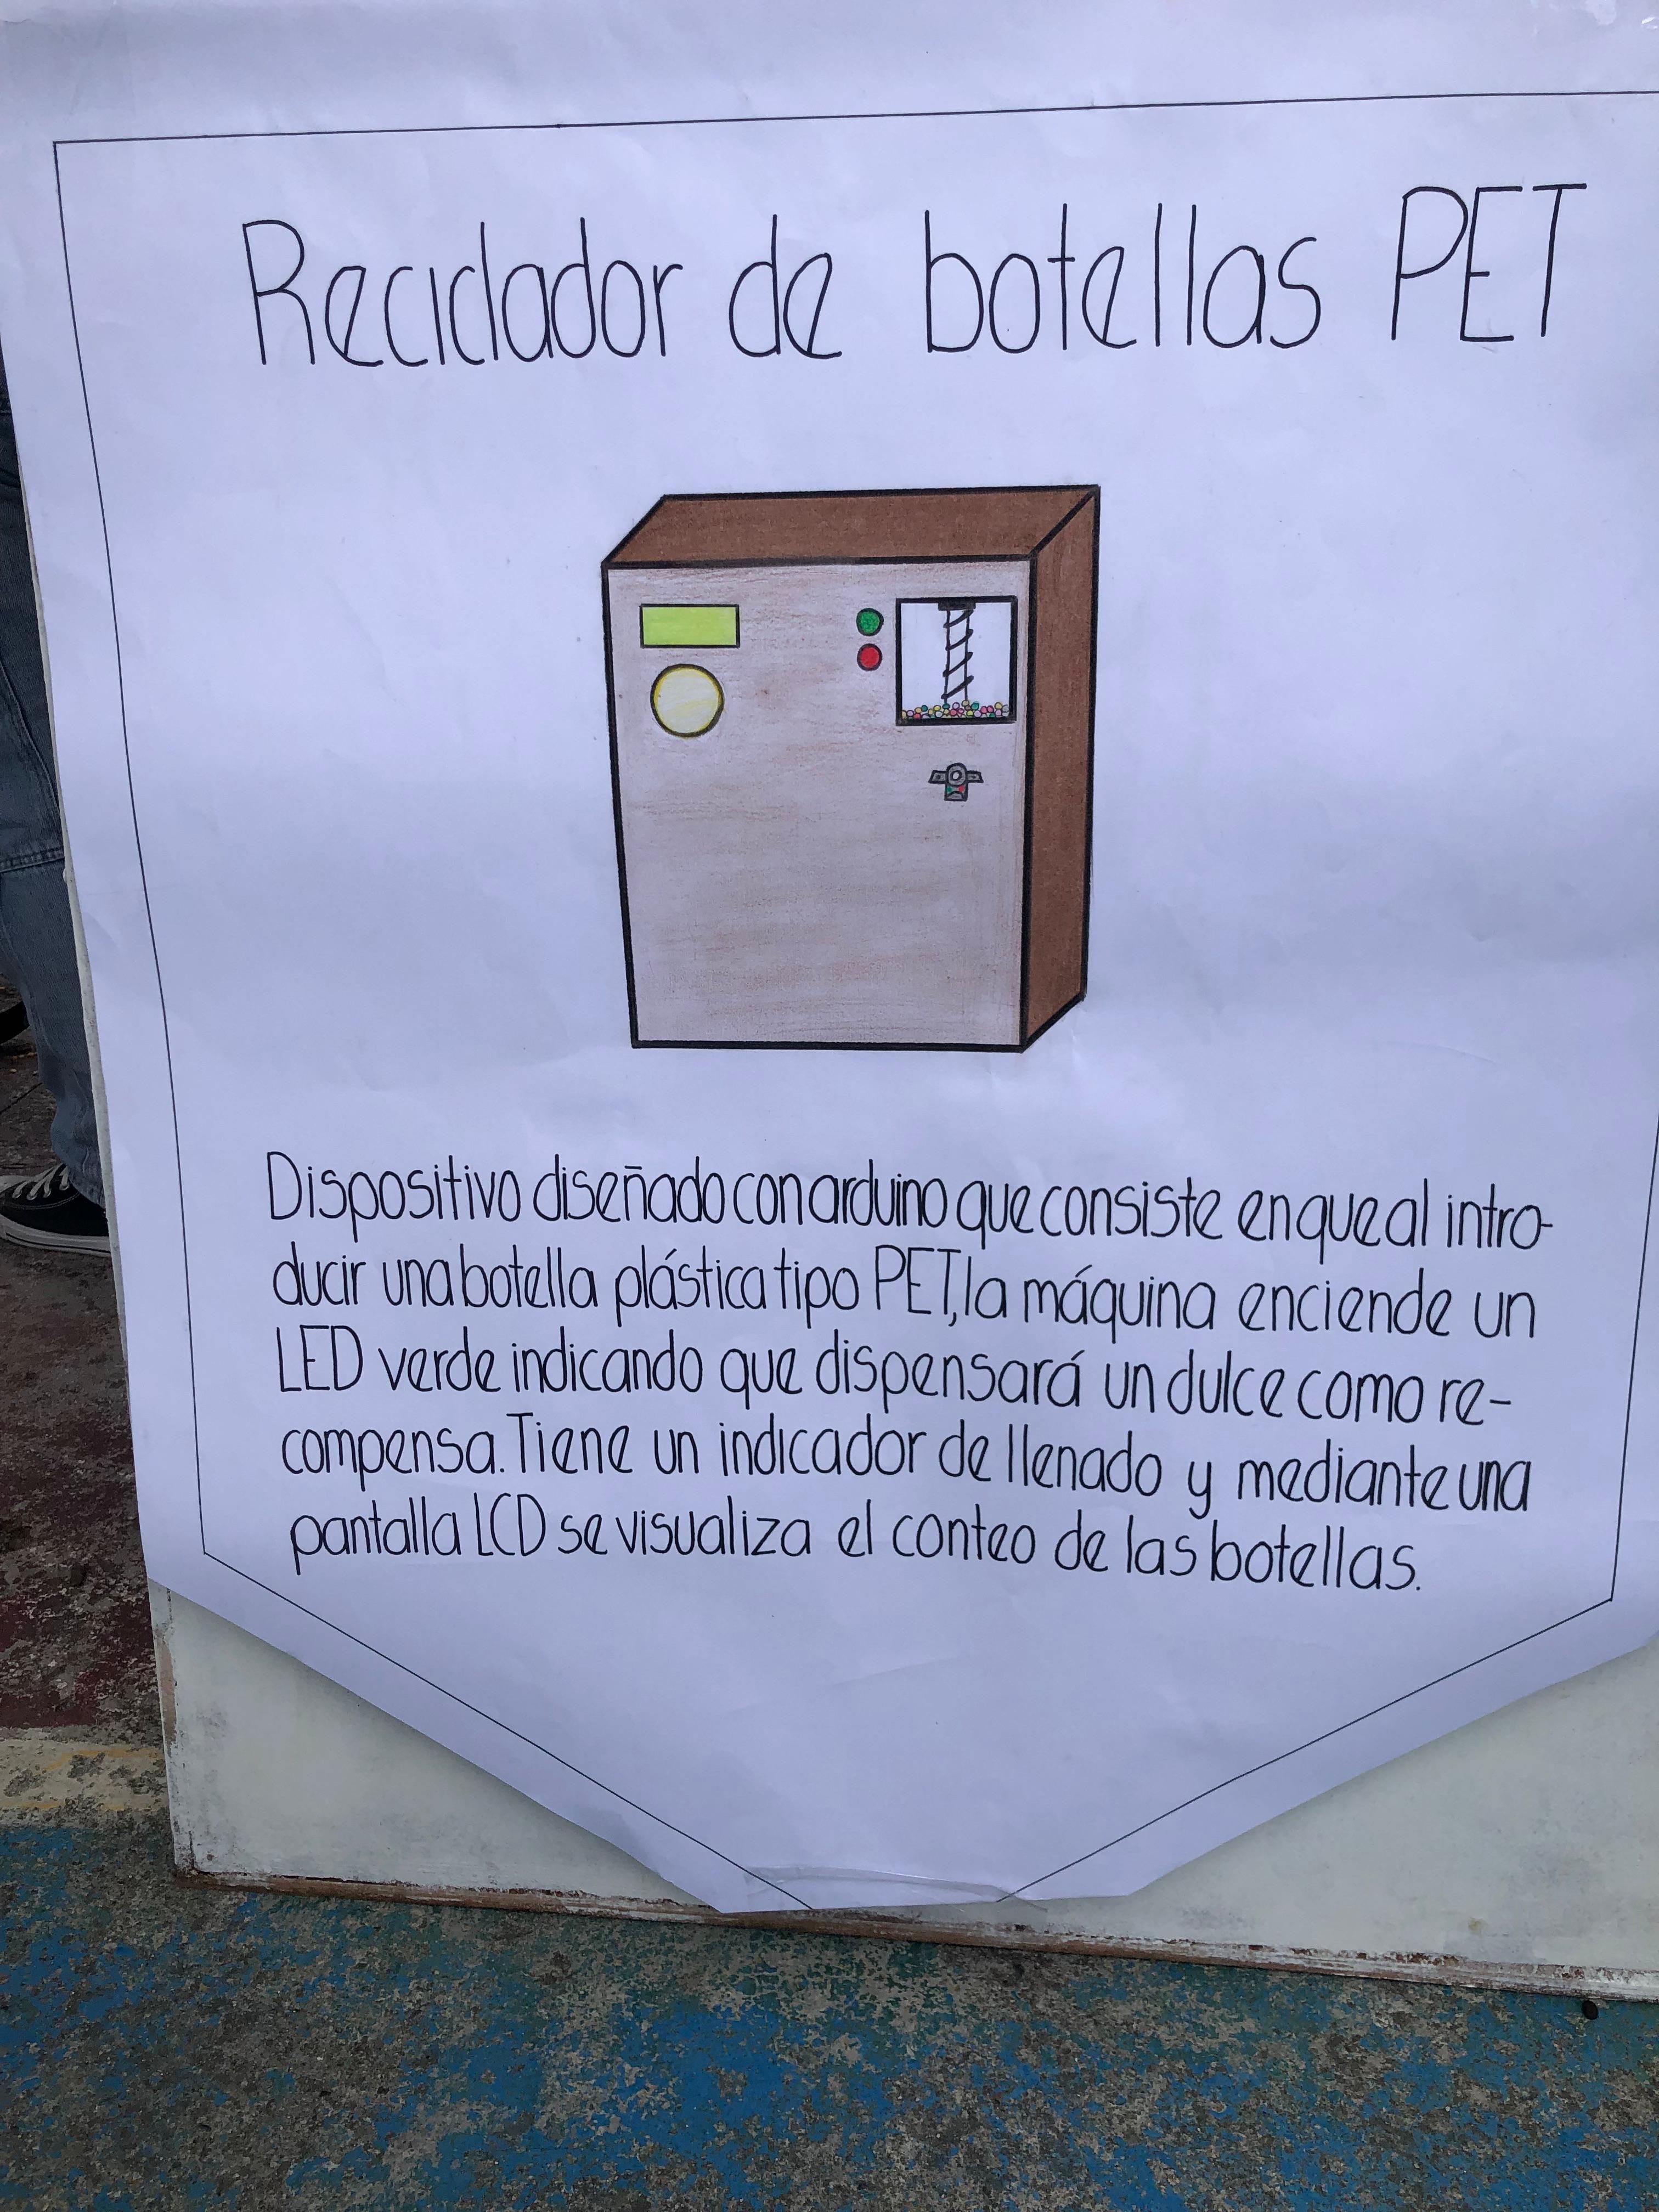 Reciclador de botellas PET
Dispositivo diseñado con arduino que consiste en que al intro-
ducir una botella plástica tipo PET, la máquina enciende un
LED verde indicando que dispensará un dulce como re-
compensa. Tiene un indicador de llenado y mediante una
pantalla LCD se visualiza el conteo de las botellas.